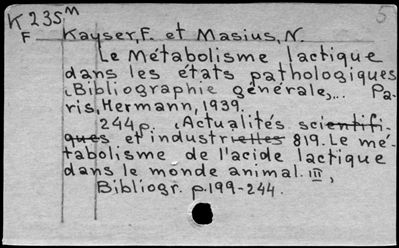 K 235 M 5
F Kayser, F. et Masius, N.
Le Métabolisme lactique
dans les états pathologiques
(Bibliographie générale)... Pa-
ris, Hermann, 1939.
244 p. (Actualités scientifi-
ques et industrielles 819. Le mé-
tabolisme de l'acide lactique
dans le monde animal. III)
Bibliogr. p. 199-244.